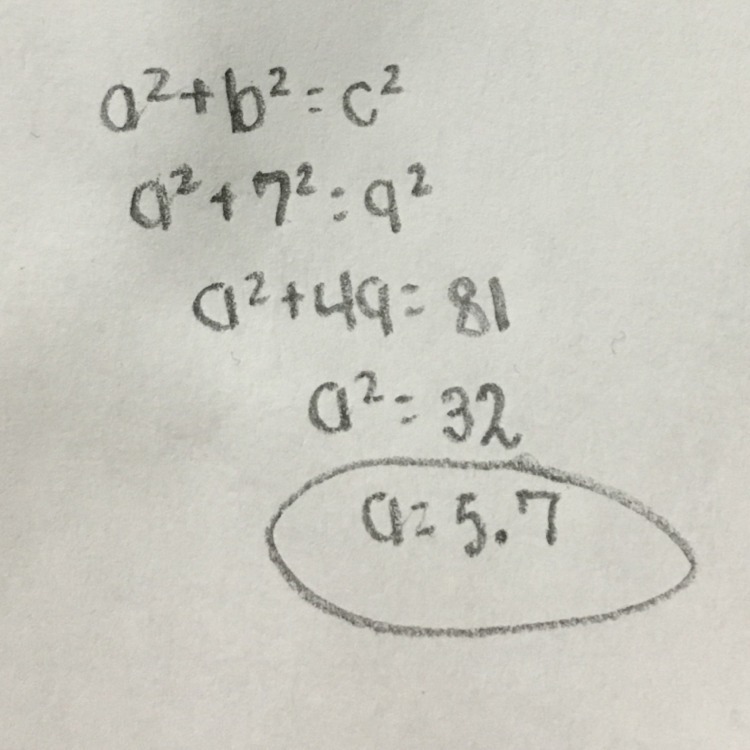 a²+b²=c²
a²+7²=9²
a²+49=81
a²=32
a=5.7